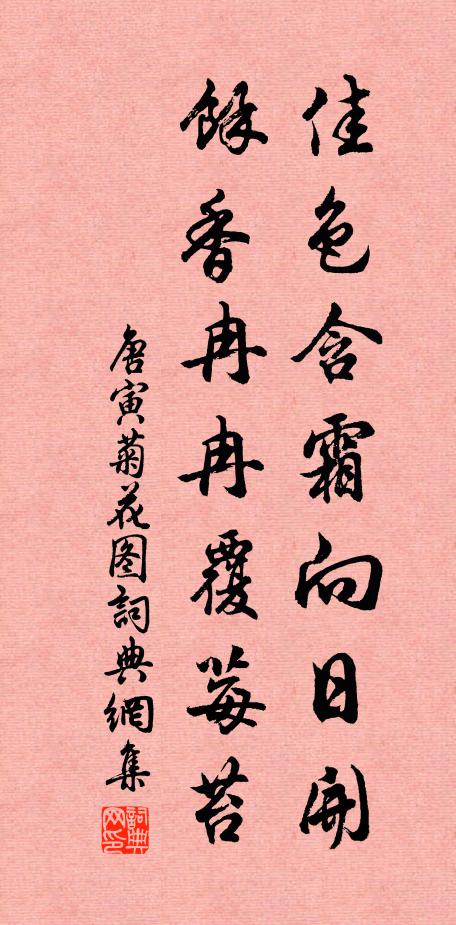 佳色含霜向日開
餘香冉冉覆莓苔
唐寅菊花图詞典網集
詞典网印